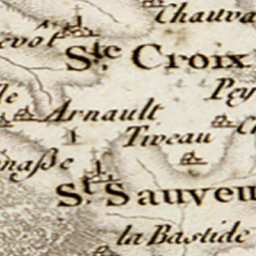 Chauva
evôt
Ste. Croix
Pey
lle
Arnault
Tiveau
naße
St. Sauveu
la Bastide